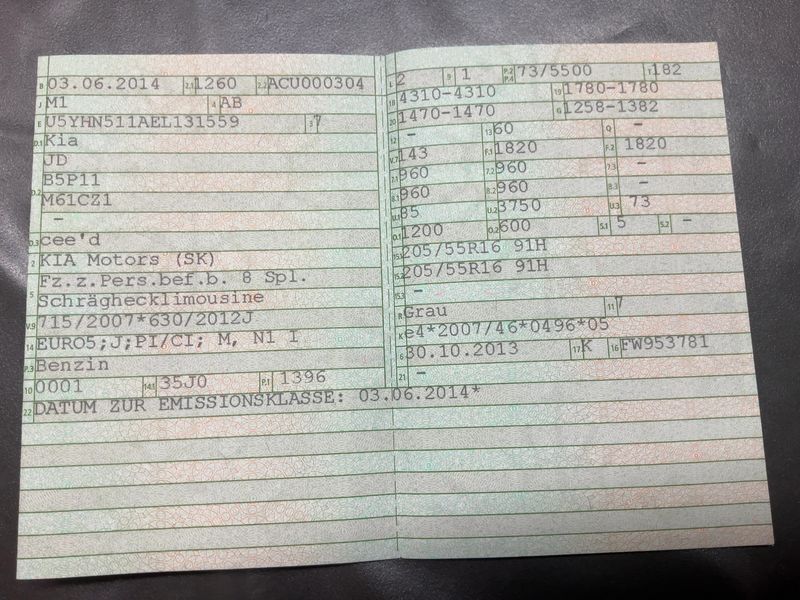 B 03.06.2014 2.1 1260 2.2 ACU000304
J M1 4 AB
E U5YHN511AEL131559 3 7
D.1 Kia
JD
D.2 B5P11
M61CZ1
–
D.3 cee'd
2 KIA Motors (SK)
5 Fz.z.Pers.bef.b. 8 Spl.
Schräghecklimousine
V.9 715/2007*630/2012J
14 EURO5;J;PI/CI; M, N1 I
P.3 Benzin
10 0001 14.1 35J0 P.1 1396
22 DATUM ZUR EMISSIONSKLASSE: 03.06.2014*
L 2 9 1 P.2 P.4 73/5500 T 182
18 4310-4310 19 1780-1780
20 1470-1470 G 1258-1382
12 – 13 60 Q –
V.7 143 F.1 1820 F.2 1820
7.1 960 7.2 960 7.3 –
8.1 960 8.2 960 8.3 –
U.1 85 U.2 3750 U.3 73
O.1 1200 O.2 600 S.1 5 S.2 –
15.1 205/55R16 91H
15.2 205/55R16 91H
15.3 –
R Grau 11 7
K e4*2007/46*0496*05
6 30.10.2013 17 K 16 FW953781
21 –